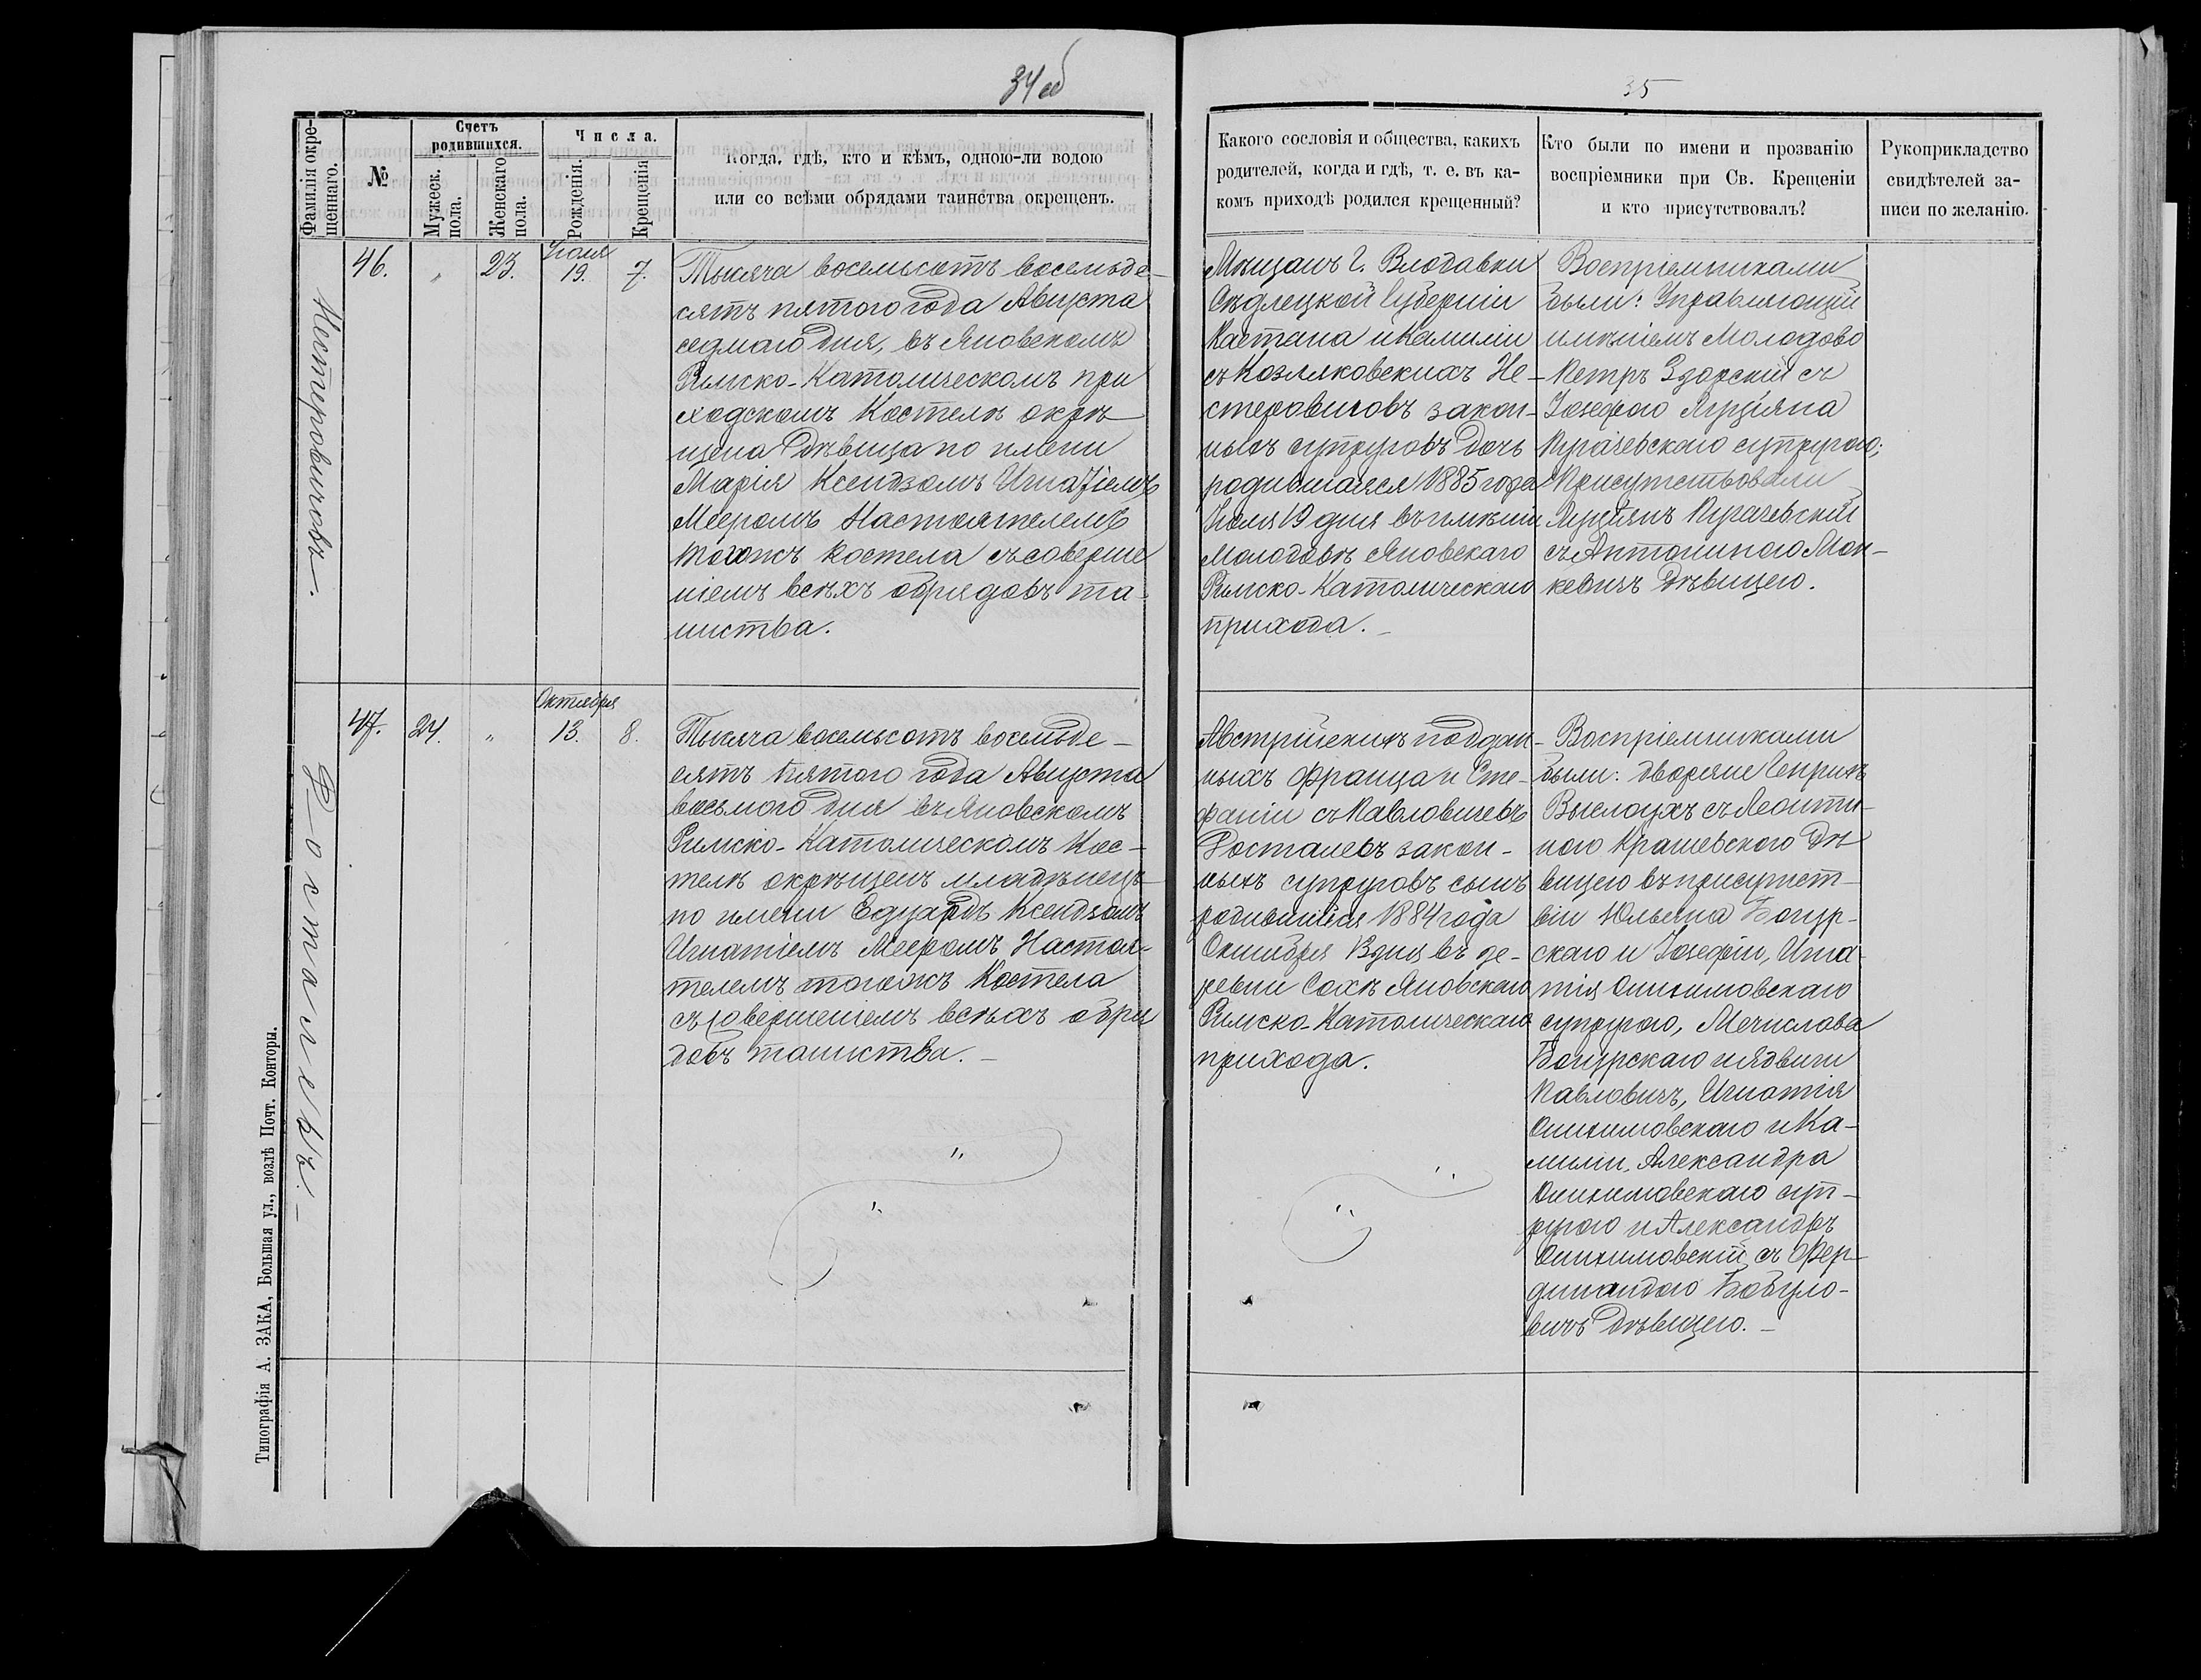 34об
35
Фамилія окре-
щеннаго.
№
Счетъ
родившихся.
Мужеск.
пола.
Женскаго
пола.
Числа.
Рожденія.
Крещенія
Когда, гдѣ, кто и кѣмъ, одною-ли водою
или со всѣми обрядами таинства окрещенъ.
Какого сословія и общества, какихъ
родителей, когда и гдѣ, т. е. въ ка-
комъ приходѣ родился крещенный?
Кто были по имени и прозванію
воспріемники при Св. Крещеніи
и кто присутствовалъ?
Рукоприкладство
свидѣтелей за-
писи по желанію.
Нестеровичовъ.
46.
"
23.
Іюля
19.
7.
Тысяча восемьсотъ восемьде-
сятъ пятого года Августа
седмаго дня, въ Яновскомъ
Римско-Католическомъ при
ходскомъ Костелѣ окрѣ
щена Дѣвица по имени
Марія Ксендзомъ Игнатіемъ
Мееромъ Настоятелемъ
тогожъ Костела съ соверше
ніемъ всѣхъ обрядовъ та-
инства.
Мѣщанъ г. Влодавки
Сѣдлецкой Губерніи
Каетана и Камиліи
съ Козляковскихъ Не-
стеровичовъ закон-
ныхъ супруговъ дочь
родившаяся 1885 года
Іюля 19 дня въ имѣніи
Молодовѣ Яновскаго
Римско-Католическаго
прихода.
Воспріемниками
были: Управляющій
имѣніемъ Молодово
Петръ Здорскій съ
Іозефою Луціяна
Пугачевскаго супругою;
Присутствовали
Луціянъ Пугачевскій
съ Антониною Мон-
кевичъ дѣвицею.
Росталевъ.
47.
24.
"
Октября
13.
8.
Тысяча восемьсотъ восемьде-
сятъ пятого года Августа
восьмого дня въ Яновскомъ
Римско-Католическомъ Кос-
телѣ окрѣщенъ младѣнецъ
по имени Едуардъ Ксендзомъ
Игнатіемъ Мееромъ Настоя-
телемъ тогожъ Костела
съ совершеніемъ всѣхъ обря
довъ таинства.
Австрійскихъ поддан-
ныхъ Франца и Сте-
фаніи съ Павловичевъ
Росталевъ закон-
ныхъ супруговъ сынъ
родившійся 1884 года
Октября 13 дня въ де-
ревни Сохѣ Яновскаго
Римско-Католическаго
прихода.
Воспріемниками
были: дворяне Генрихъ
Выслоухъ съ Леонти-
ною Крашевского дѣ
вицею въ присутст-
віи Юльяна Богур-
скаго и Іозефію, Игна-
тія
супругою, Мечислава
Богурскаго и Ядвиги
Павловичъ, Игнатія
и Ка-
миліи, Александра
суп-
ругою и Александръ
съ Фер-
динандою Бобуло-
вичъ дѣвицею.
Типографія А. ЗАКА, Большая ул., возлѣ Почт. Конторы.